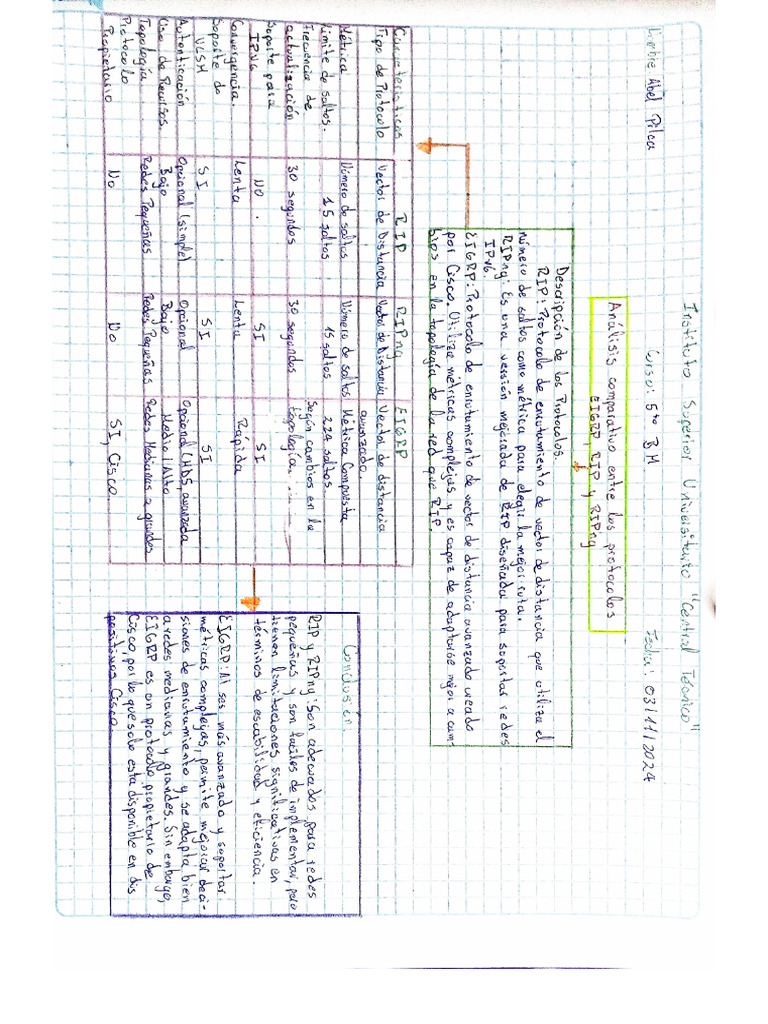 Instituto Superior Universitario "Central Técnico"
Nombre Abel Pilca Curso: 5to B M Fecha: 03/11/2024
Análisis comparativo entre los protocolos
EIGRP, RIP y RIPng
Descripción de los Protocolos.
RIP: Protocolo de enrutamiento de vector de distancia que utiliza el
número de saltos como métrica para elegir la mejor ruta.
RIPng: Es una versión mejorada de RIP diseñada para soportar redes
IPv6.
EIGRP: Protocolo de enrutamiento de vector de distancia avanzado creado
por Cisco. Utiliza métricas complejas y es capaz de adaptarse mejor a cam-
bios en la topología de la red que RIP.
Características RIP RIPng EIGRP
Tipo de Protocolo Vector de Distancia Vector de Distancia Vector de distancia
avanzado.
Métrica Número de saltos Número de saltos Métrica Compuesta
Limite de saltos. 15 saltos. 15 saltos 224 saltos.
Frecuencia de Según cambios en la
actualización 30 segundos 30 segundos topología.
Soporte para
IPv6 No. SI SI
Convergencia. Lenta Lenta Rápida
Soporte de
VLSM SI SI SI
Autenticación Opcional (simple) Opcional Opcional (MD5, avanzada
Uso de Recursos. Bajo Bajo Medio/Alto
Topología Redes Pequeñas Redes Pequeñas Redes Medianas a grandes
Protocolo
Propietario No No SI, Cisco.
Conclusión.
RIP y RIPng: Son adecuados para redes
pequeñas y son faciles de implementar, pero
tienen limitaciones significativas en
términos de escabilidad y eficiencia.
EIGRP: Al ser más avanzado y soportar
métricas complejas, permite mejorar deci-
siones de enrutamiento y se adapta bien
a redes medianas y grandes. Sin embargo,
EIGRP es un protocolo propietario de
Cisco, por lo que solo esta disponible en dis
positivos Cisco.